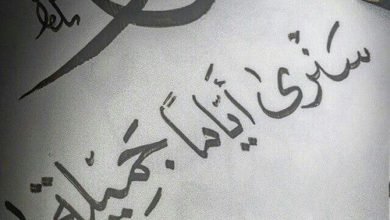 سَنَرىٰ أيَّاماً جَمِيلة